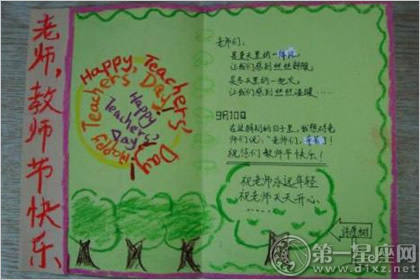 老师,教师节快乐
Happy Teachers' Day!
Happy Teachers' Day!
Happy
老师们:
是夏天里的一阵风
让我们感到丝丝舒服
是冬天里的一把火
让我们感到温暖……
9月10日
在这特别的日子里,我想对老
师们说:"老师们,辛苦了!
祝您们教师节快乐!
祝老师永远年轻
祝老师天天开心
第一星座网
www.dixz.net